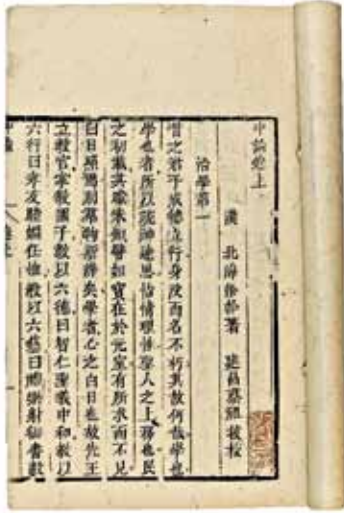 中論卷上
漢 北海徐幹著 建昌蔡 校
治學第一
昔之君子成德立行身沒而名不朽其故何哉學也
學也者所以疏神達思怡情理性聖人之上務也民
之初載其矇未知譬如寶在於元室有所求而不見
白日照焉則羣物斯辨矣學者心之白日也故先王
立教官掌教國子教以六德曰智仁聖義中和教以
六行曰孝友睦婣任恤教以六藝曰禮樂射御書數